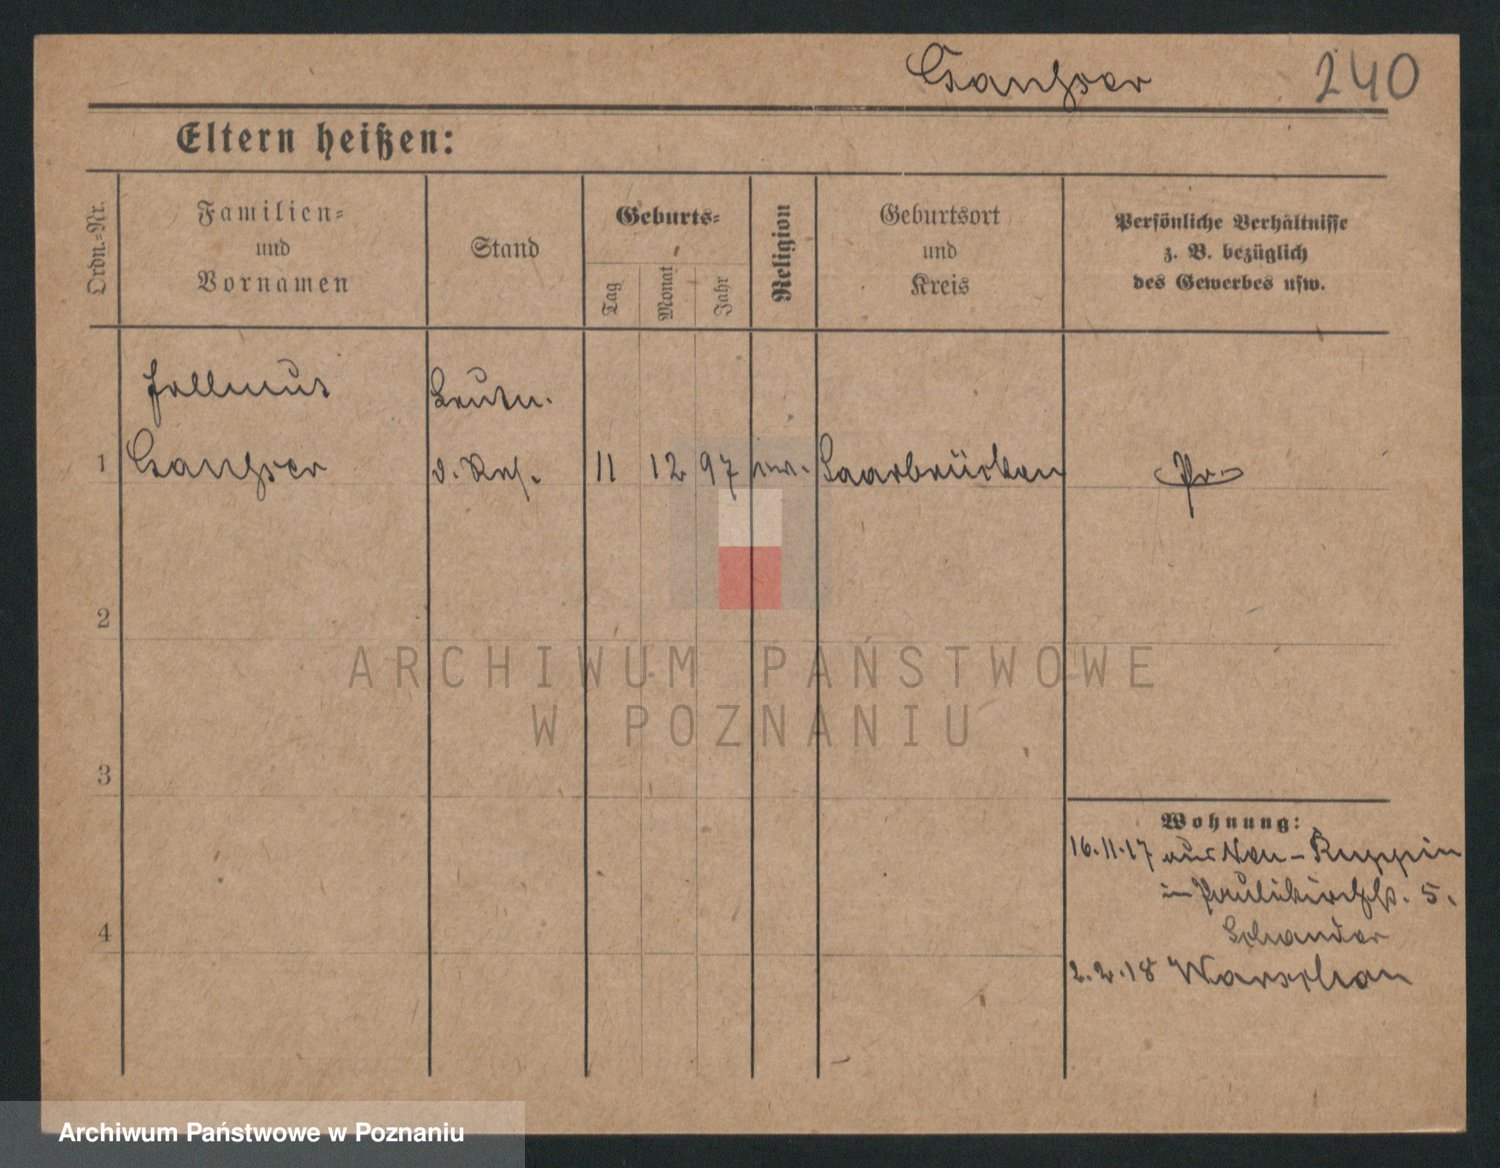 240
Eltern heißen:
Ordn.-Nr.
Familien-
und
Vornamen
Stand
Geburts-
Tag
Monat
Jahr
Religion
Geburtsort
und
Kreis
Persönliche Verhältnisse
z. B. bezüglich
des Gewerbes usw.
Leutn.
1
d. Res.
11
12
97
Saarbrücken
Pr.
2
ARCHIWUM PAŃSTWOWE
W POZNANIU
3
Wohnung:
16.11.17 aus Neu-Ruppin
in Paulikirchstr. 5.
4
2.2.18 Warschau
Archiwum Państwowe w Poznaniu